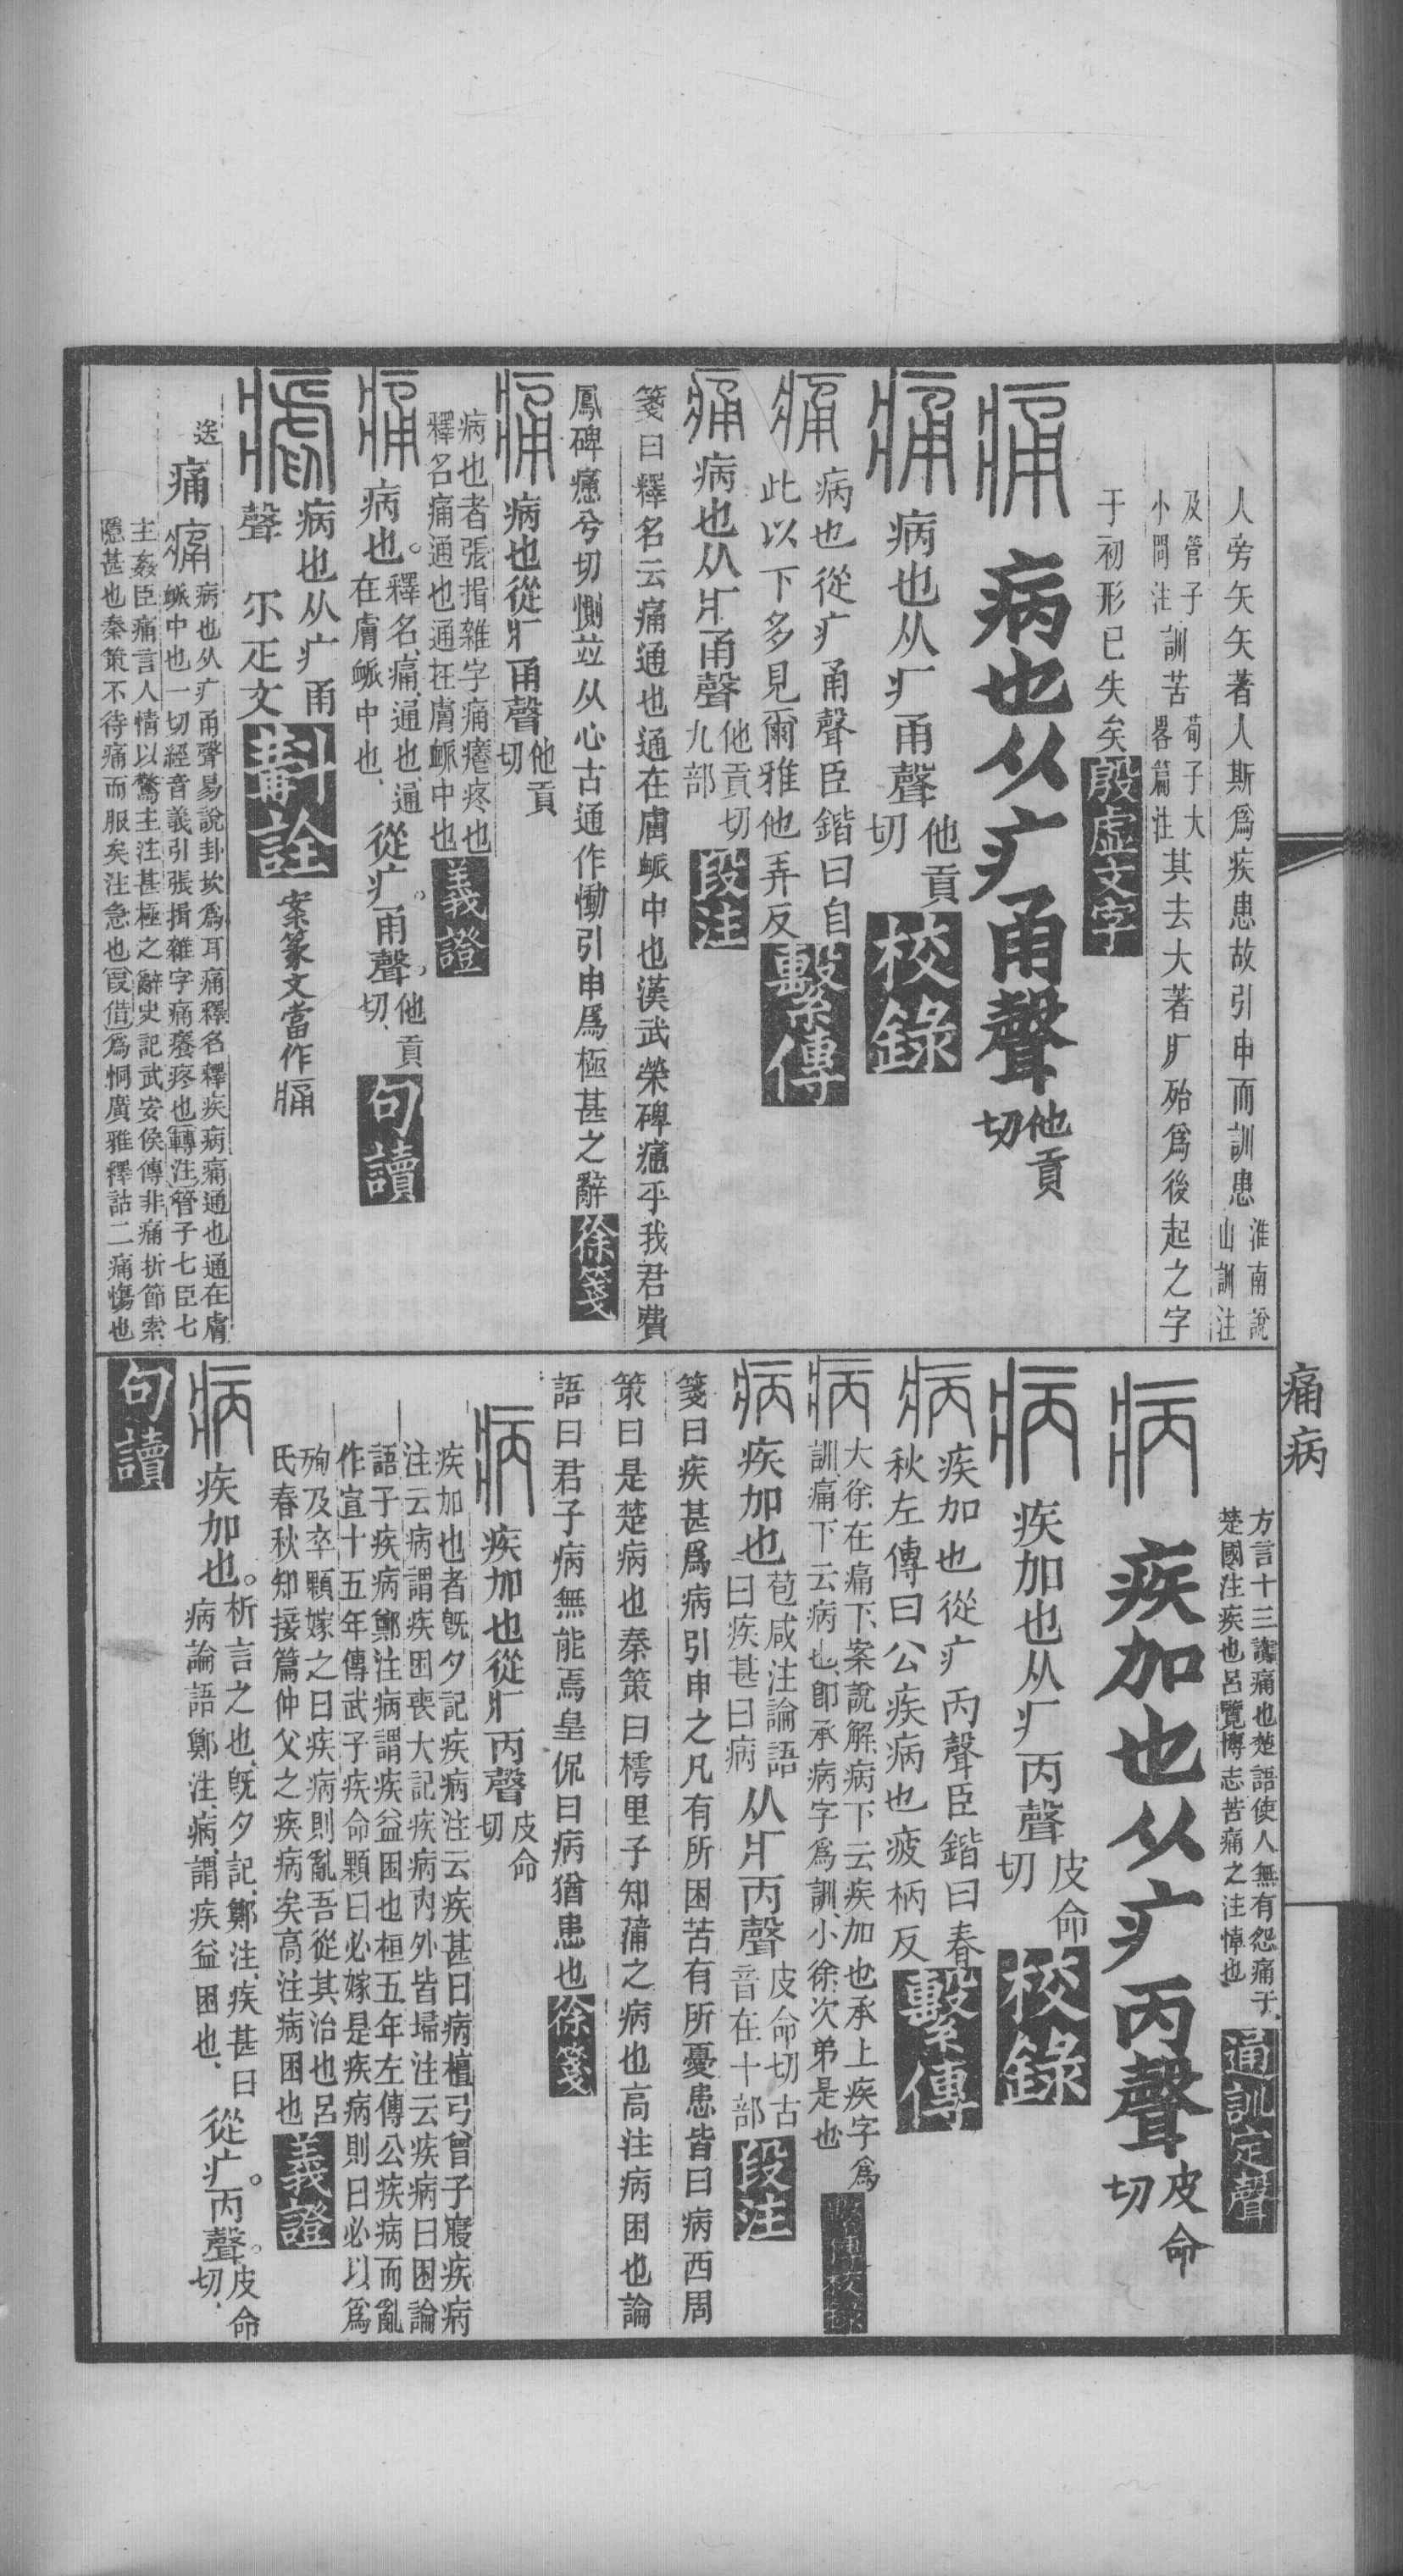 痛病
人旁矢矢著人斯爲疾患故引申而訓患淮南說山訓注
及管子小問注訓苦荀子大略篇注其去大著疒殆爲後起之字
于初形已失矣殷虛文字
病也从疒甬聲他貢切
病也从疒甬聲他貢切校錄
病也從疒甬聲臣鍇曰自
此以下多見爾雅他弄反繫傳
病也从疒甬聲他貢切九部段注
箋曰釋名云痛通也通在膚脈中也漢武榮碑痛乎我君費
鳳碑 兮切惻竝从心古通作慟引申爲極甚之辭徐箋
病也從疒甬聲他貢切
病也者張揖雜字痛癢疼也
釋名痛通也通在膚脈中也義證
病也。釋名、痛、通也、通在膚脈中也、從疒。甬聲。他貢切、句讀
病也从疒甬
聲 尔疋文斠詮案篆文當作
送痛 病也从疒甬聲易說卦坎爲耳痛釋名釋疾病痛通也通在膚
脈中也一切經音義引張揖雜字痛癢疼也轉注管子七臣七
主姦臣痛言人情以驚主注甚極之辭史記武安侯傳非痛折節索
隱甚也秦策不待痛而服矣注急也叚借爲恫廣雅釋詁二痛傷也
方言十三 痛也楚語使人無有怨痛于
楚國注疾也呂覽博志苦痛之注悼也通訓定聲
疾加也从疒丙聲皮命切
疾加也从疒丙聲皮命切校錄
疾加也從疒丙聲臣鍇曰春
秋左傳曰公疾病也疲柄反繫傳
大徐在痛下、案說解病下云疾加也承上疾字爲
訓、痛下云病也、卽承病字爲訓、小徐次弟是也繫傳校錄
疾加也苞咸注論語曰疾甚曰病从疒丙聲皮命切古音在十部段注
箋曰疾甚爲病引申之凡有所困苦有所憂患皆曰病西周
策曰是楚病也秦策曰樗里子知蒲之病也高注病困也論
語曰君子病無能焉皇侃曰病猶患也徐箋
疾加也從疒丙聲皮命切
疾加也者旣夕記疾病注云疾甚曰病檀弓曾子寢疾病
注云病謂疾困喪大記疾病內外皆埽注云疾病曰困論
語子疾病鄭注病謂疾益困也桓五年左傳公疾病而亂
作宣十五年傳武子疾命顆曰必嫁是疾病則曰必以爲
殉及卒顆嫁之曰疾病則亂吾從其治也呂
氏春秋知接篇仲父之疾病矣高注病困也義證
疾加也。析言之也、旣夕記、鄭注、疾甚曰病、論語鄭注、病、謂疾益困也、從疒。丙聲。皮命切、
句讀